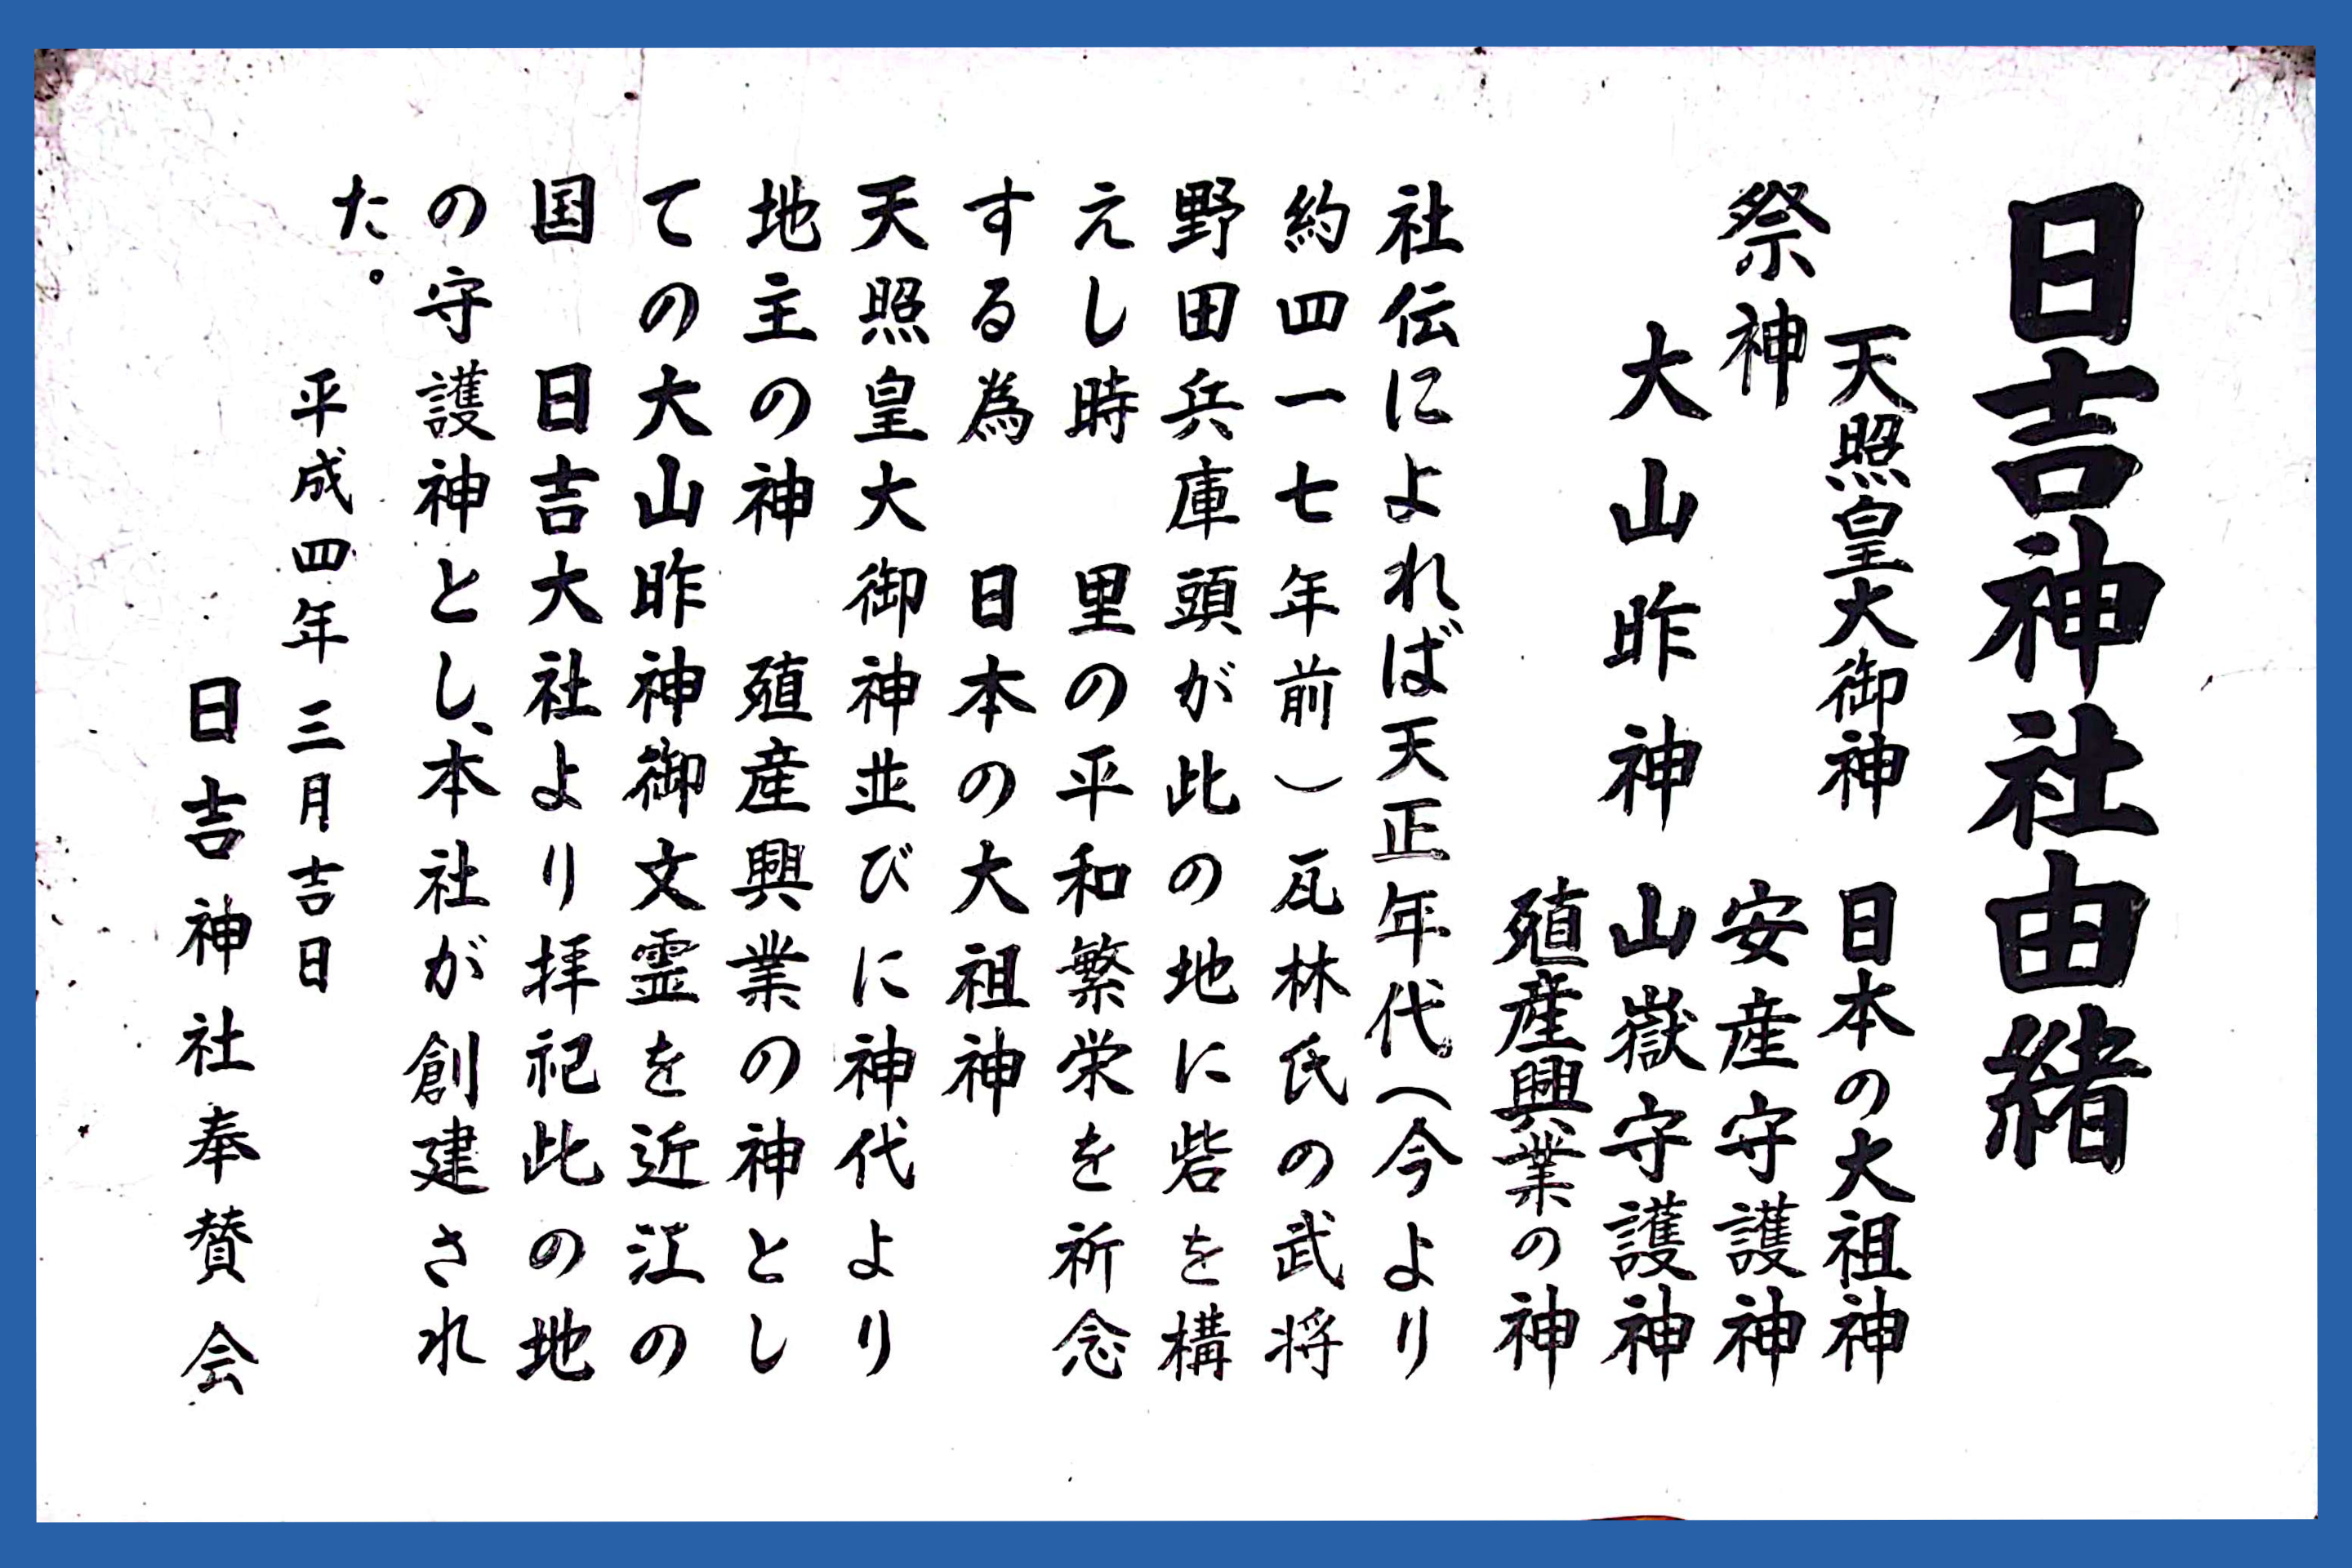 日吉神社由緒
天照皇大御神 日本の大祖神
祭神 安産守護神
大山昨神 山嶽守護神
殖産興業の神
社伝によれば天正年代（今より
約四一七年前）瓦林氏の武将
野田兵庫頭が此の地に砦を構
えし時 里の平和繁栄を祈念
する為 日本の大祖神
天照皇大御神並びに神代より
地主の神 殖産興業の神とし
ての大山昨神御文霊を近江の
国 日吉大社より拝祀此の地
の守護神とし、本社が創建され
た。
平成四年三月吉日
日吉神社奉賛会